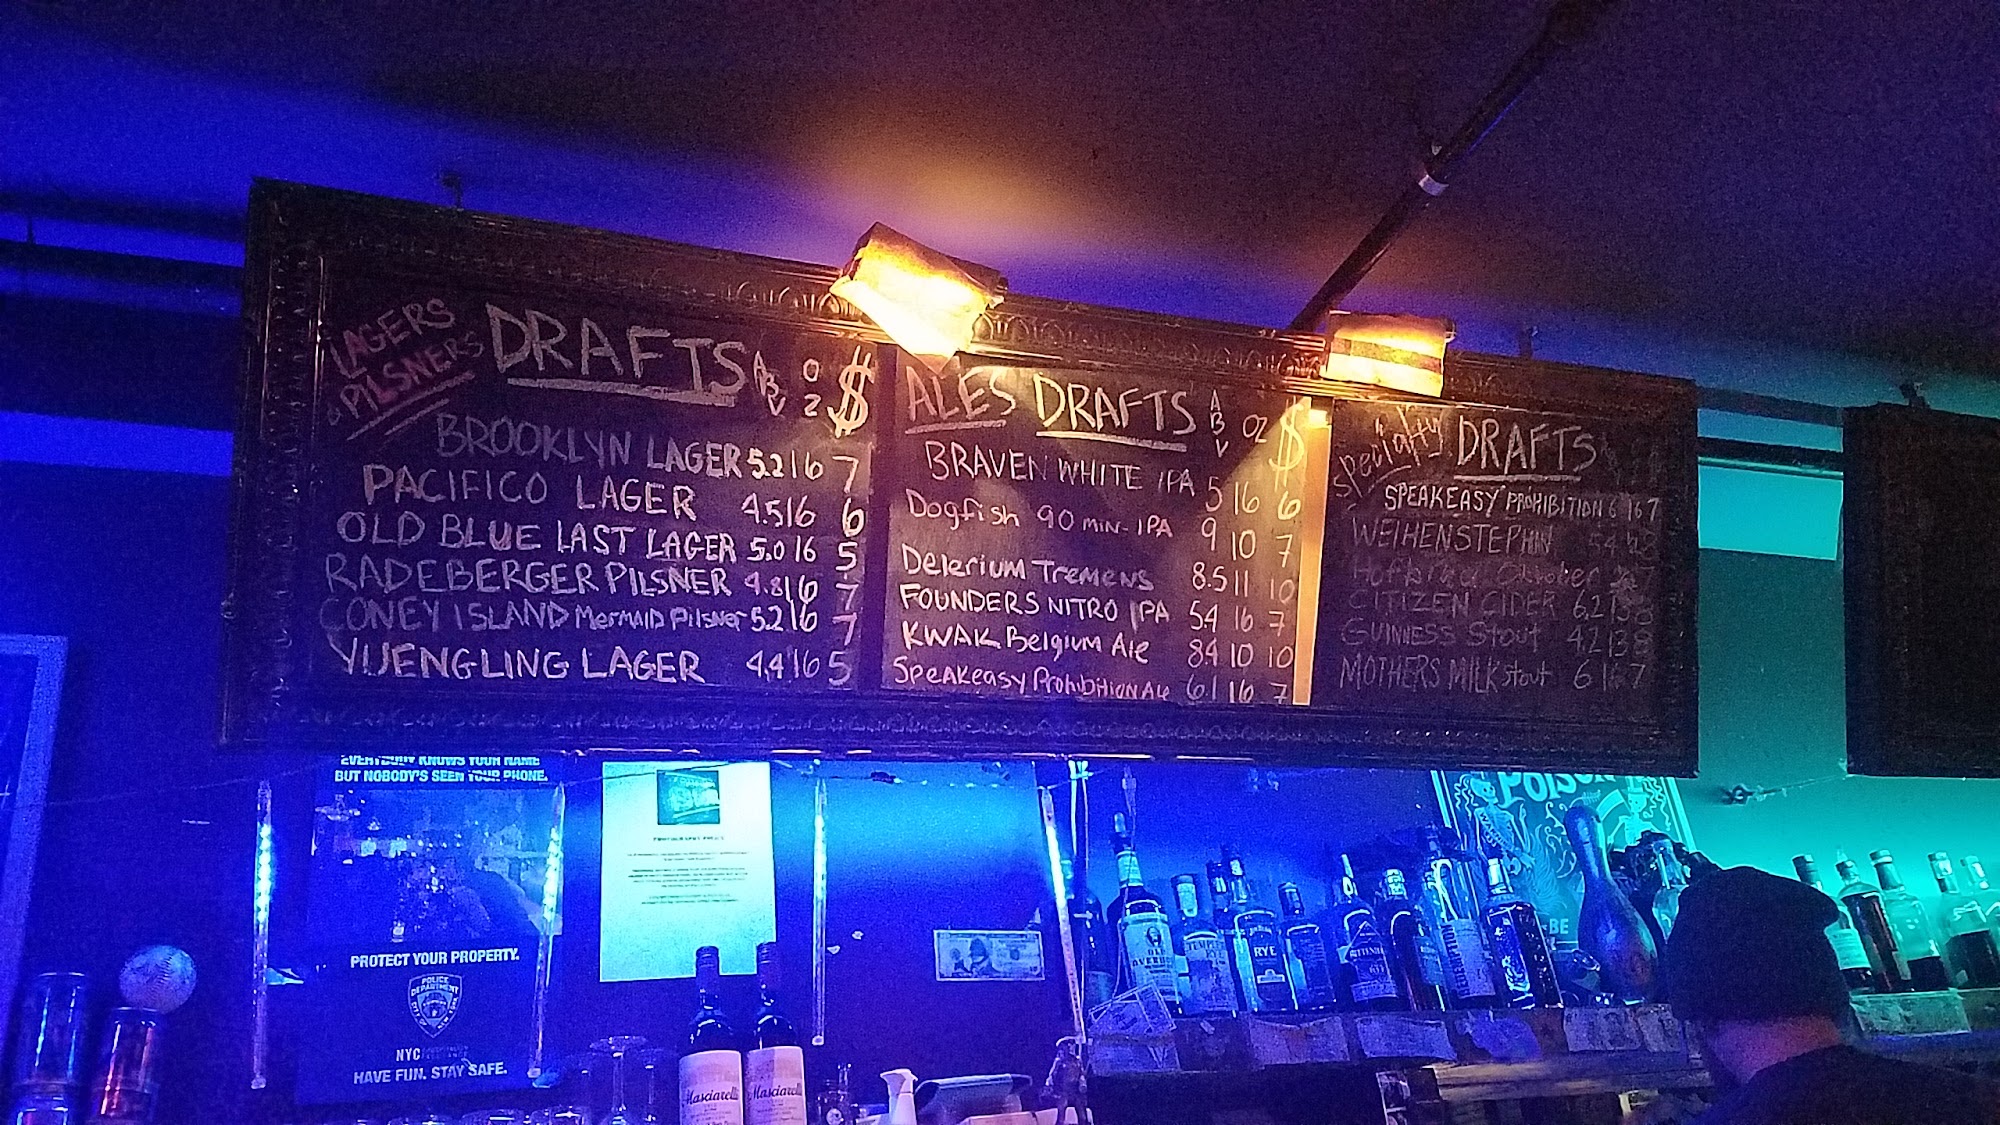 LAGERS
& PILSNERS
DRAFTS ABV OZ $
BROOKLYN LAGER 5.2 16 7
PACIFICO LAGER 4.5 16 6
OLD BLUE LAST LAGER 5.0 16 5
RADEBERGER PILSNER 4.8 16 7
CONEY ISLAND MERMAID PILSNER 5.2 16 7
YUENGLING LAGER 4.4 16 5
ALES DRAFTS ABV OZ $
BRAVEN WHITE IPA 5 16 6
Dogfish 90 MIN- IPA 9 10 7
Delerium Tremens 8.5 11 10
FOUNDERS NITRO IPA 54 16 7
KWAK Belgium Ale 84 10 10
Speakeasy Prohibition Ale 6.1 16 7
Specialty DRAFTS
SPEAKEASY PROHIBITION 6 16 7
WEIHENSTEPHIN
Oktober
CITIZEN CIDER 6.2 13 8
GUINNESS Stout 4.2 13 8
MOTHERS MILK Stout 6 16 7
EVERYBODY KNOWS YOUR NAME
BUT NOBODY'S SEEN YOUR PHONE.
PROTECT YOUR PROPERTY.
POLICE
DEPARTMENT
NYC
HAVE FUN. STAY SAFE.
Masciarelli
Masciarelli
RYE
POISON